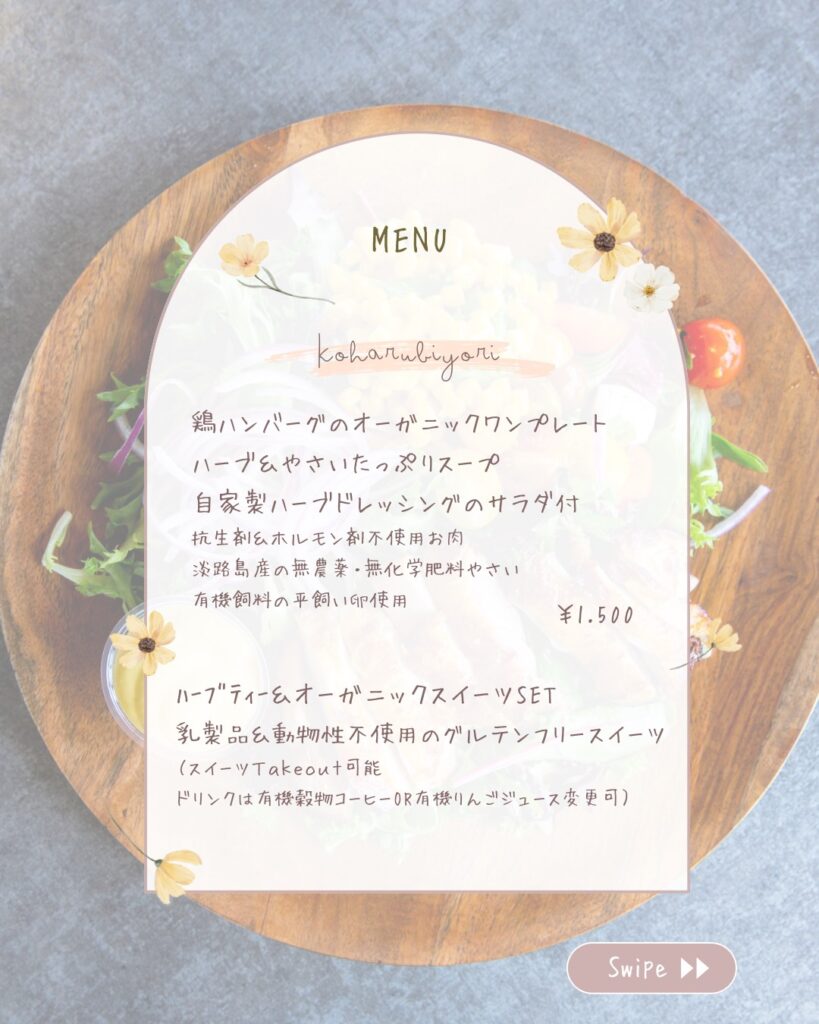 MENU
koharubiyori
鶏ハンバーグのオーガニックワンプレート
ハーブ&やさいたっぷりスープ
自家製ハーブドレッシングのサラダ付
抗生剤&ホルモン剤不使用お肉
淡路島産の無農薬・無化学肥料やさい
有機飼料の平飼い卵使用
¥1.500
ﾊｰﾌﾞﾃｨｰ&オーガニックスイーツSET
乳製品&動物性不使用のグルテンフリースイーツ
(スイーツTakeout可能
ドリンクは有機穀物コーヒーOR有機りんごジュース変更可)
Swipe